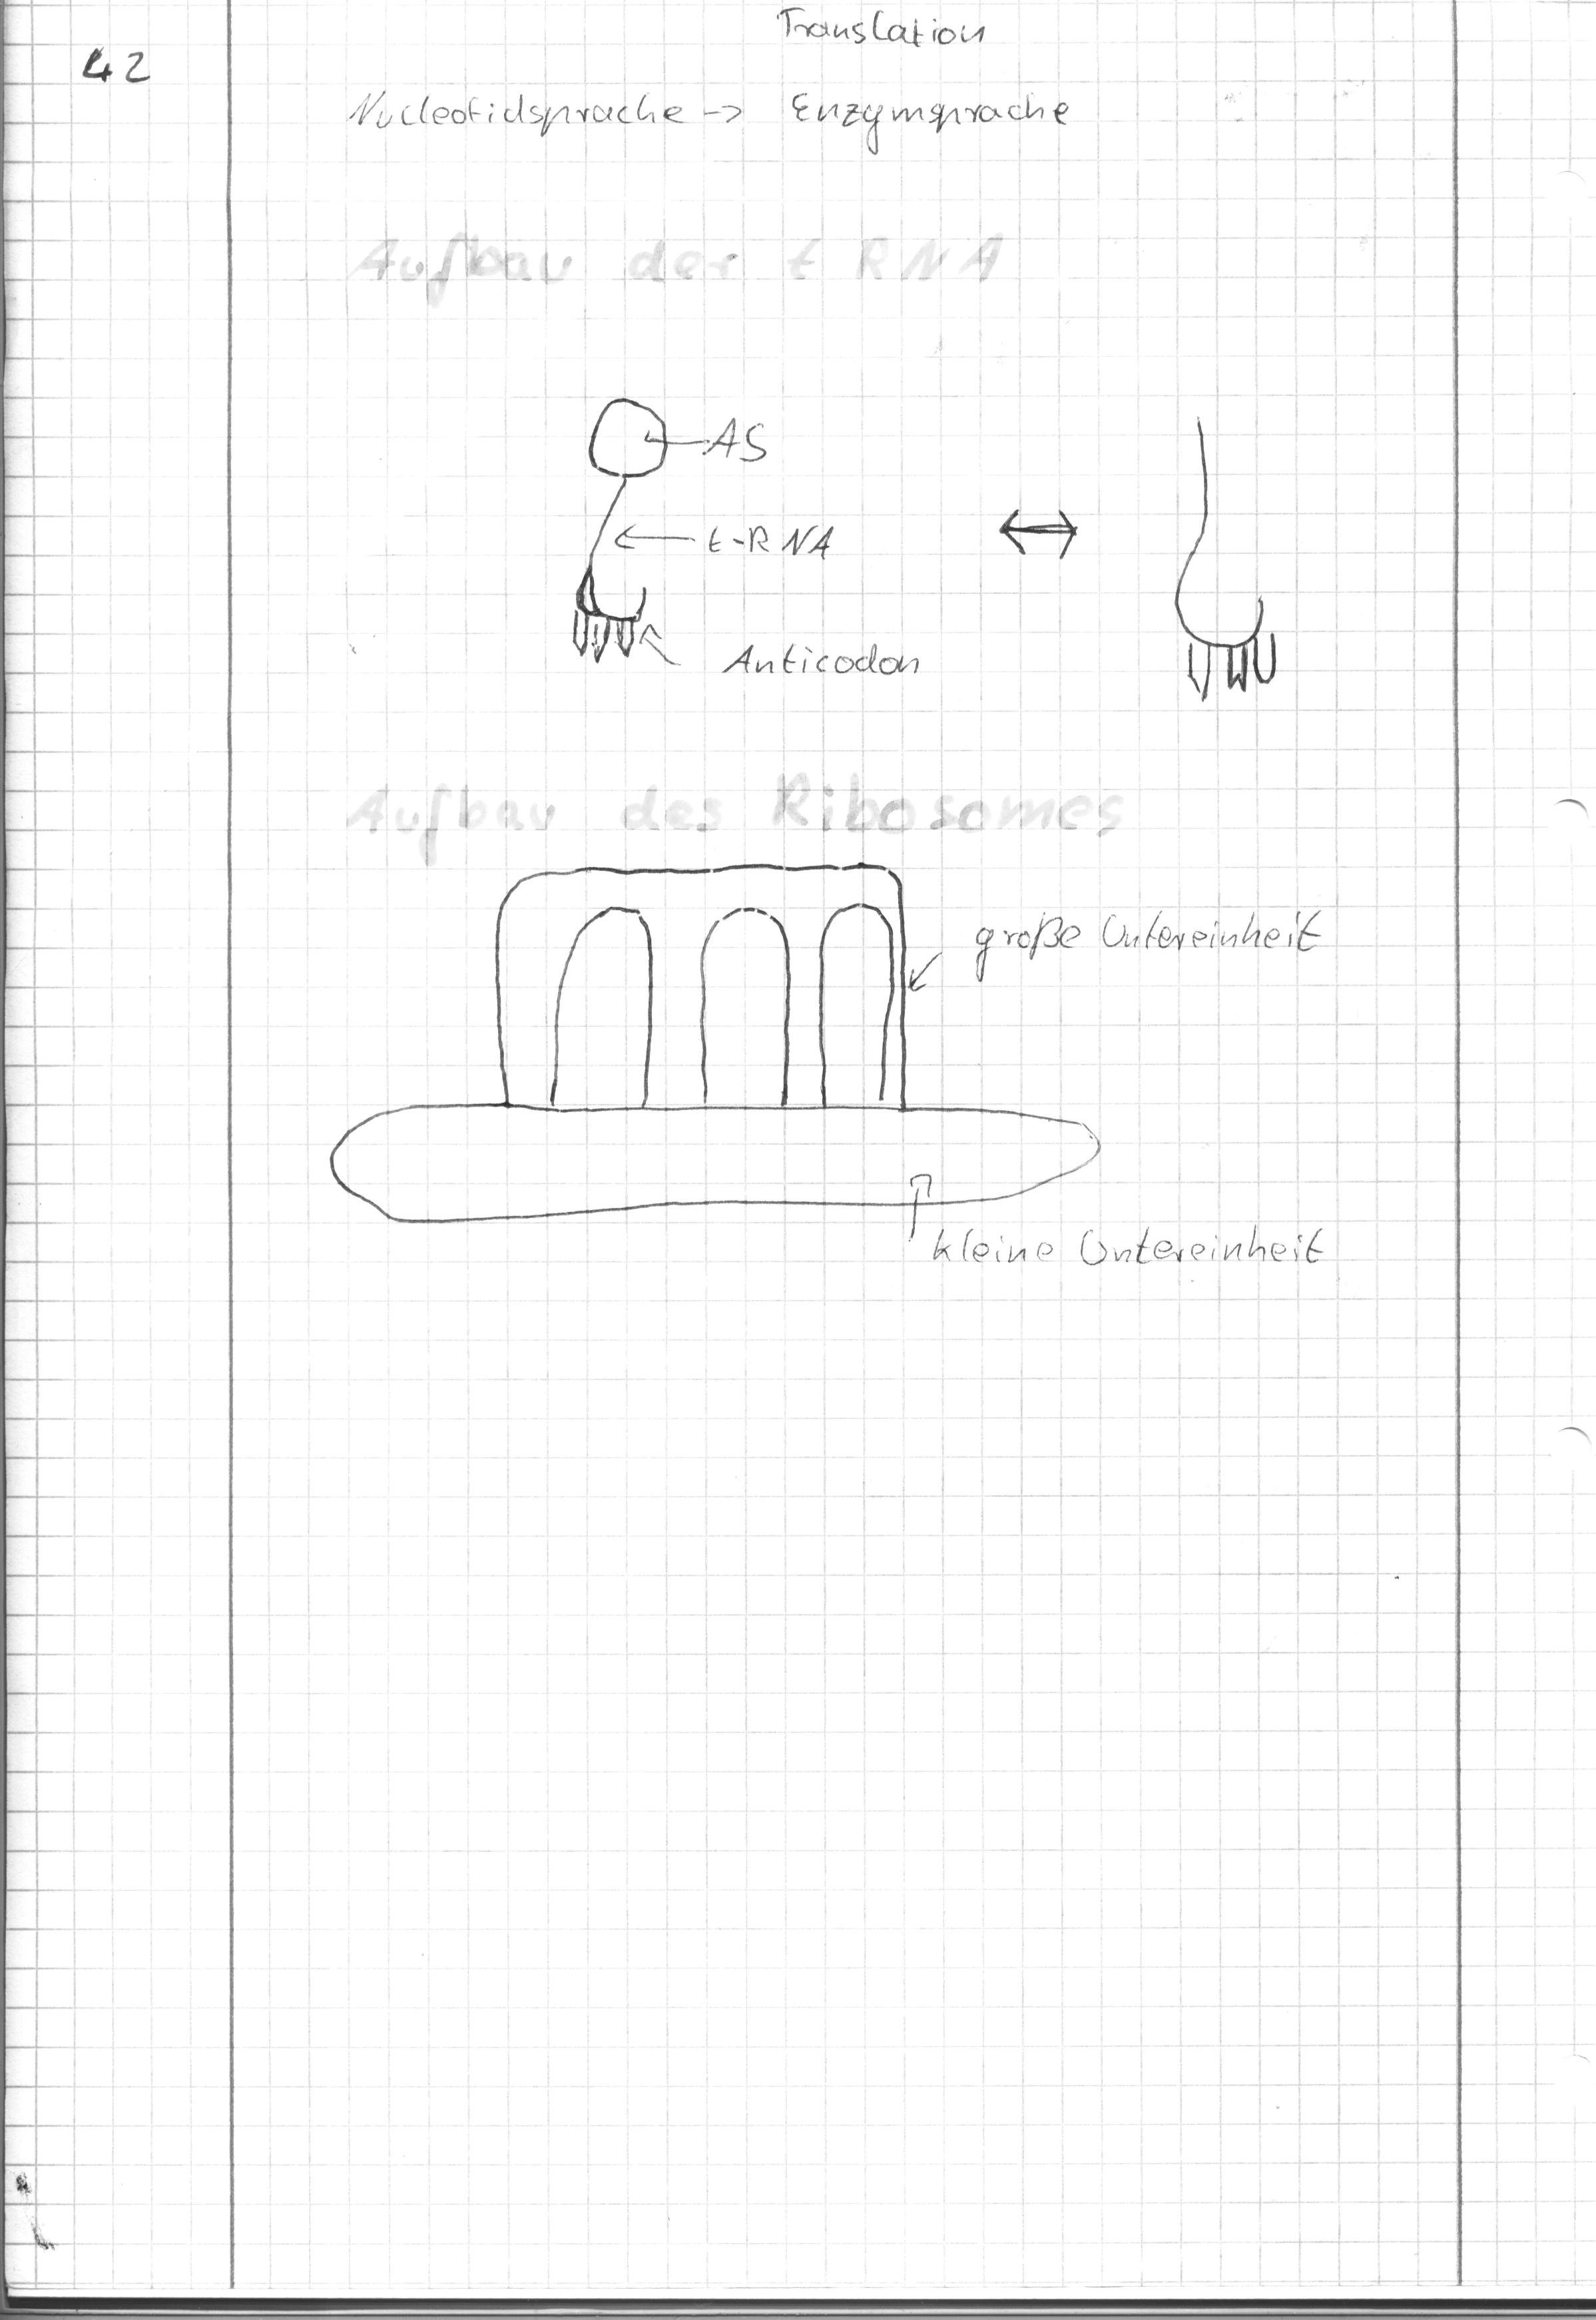 Translation
42
Nucleotidsprache -> Enzymsprache
Aufbau der t RNA
AS
t-RNA
Anticodon
Aufbau des Ribosomes
große Untereinheit
kleine Untereinheit